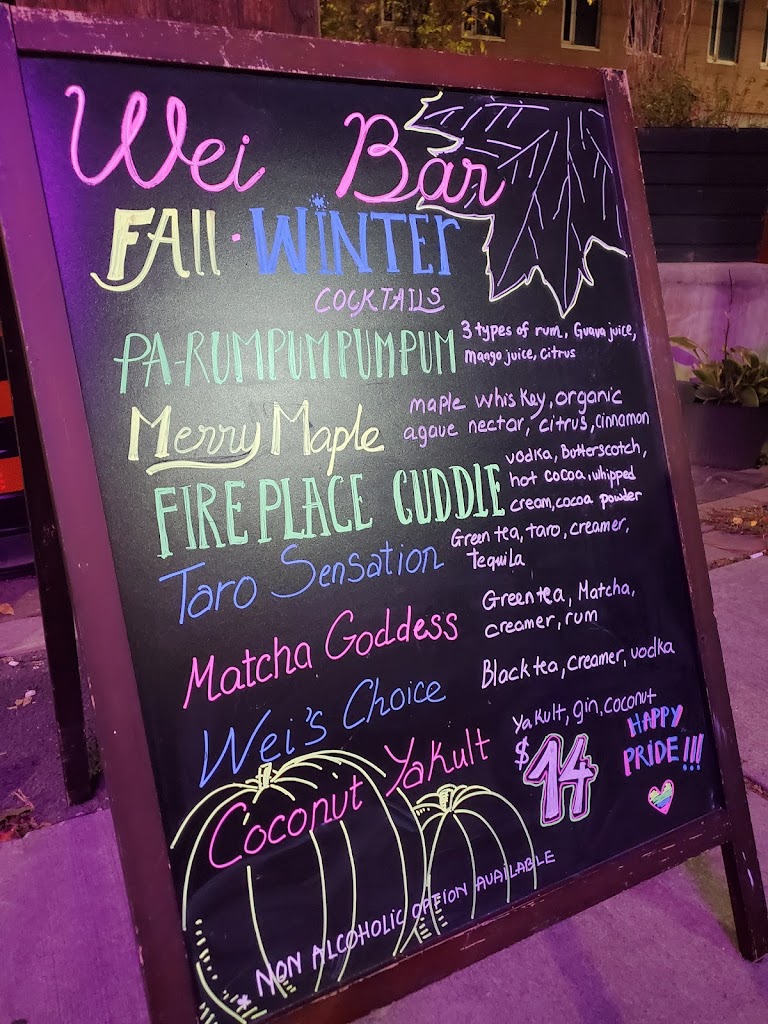 Wei Bar
FAll · WiNTEr
COCKTAILS
PA-RUMPUMPUMPUM
3 types of rum, Guava juice,
Mango juice, Citrus
Merry Maple
maple whiskey, organic
agave nectar, citrus, cinnamon
FIREPLACE CUDDLE
vodka, Butterscotch,
hot cocoa, whipped
cream, cocoa powder
Taro Sensation
Green tea, taro, creamer,
Tequila
Matcha Goddess
Green tea, Matcha,
creamer, rum
Wei's Choice
Black tea, creamer, vodka
Coconut Yakult
Yakult, gin, coconut
$14
HAPPY
PRIDE!!!
* NON ALCOHOLIC OPTION AVAILABLE